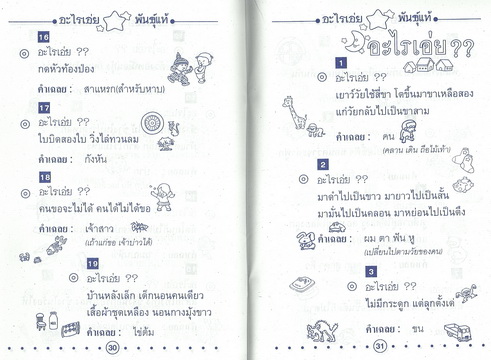 อะไรเอ่ย พันธุ์แท้
16
อะไรเอ่ย ??
กดหัวท้องป่อง
คำเฉลย : สาแหรก(สำหรับหาบ)
17
อะไรเอ่ย ??
ใบบิดสองใบ วิ่งไล่ทวนลม
คำเฉลย : กังหัน
18
อะไรเอ่ย ??
คนขอจะไม่ได้ คนได้ไม่ได้ขอ
คำเฉลย : เจ้าสาว
(เถ้าแก่ขอ เจ้าบ่าวได้)
19
อะไรเอ่ย ??
บ้านหลังเล็ก เด็กนอนคนเดียว
เสื้อผ้าชุดเหลือง นอนกางมุ้งขาว
คำเฉลย : ไข่ต้ม
30
อะไรเอ่ย พันธุ์แท้
อะไรเอ่ย ??
1
อะไรเอ่ย ??
เยาว์วัยใช้สี่ขา โตขึ้นมาขาเหลือสอง
แก่วัยกลับไปเป็นขาสาม
คำเฉลย : คน
(คลาน เดิน ถือไม้เท้า)
2
อะไรเอ่ย ??
มาดำไปเป็นขาว มายาวไปเป็นสั้น
มามั่นไปเป็นคลอน มาหย่อนไปเป็นตึง
คำเฉลย : ผม ตา ฟัน หู
(เปลี่ยนไปตามวัยของคน)
3
อะไรเอ่ย ??
ไม่มีกระดูก แต่ลุกตั้งได้
คำเฉลย : ขน
31